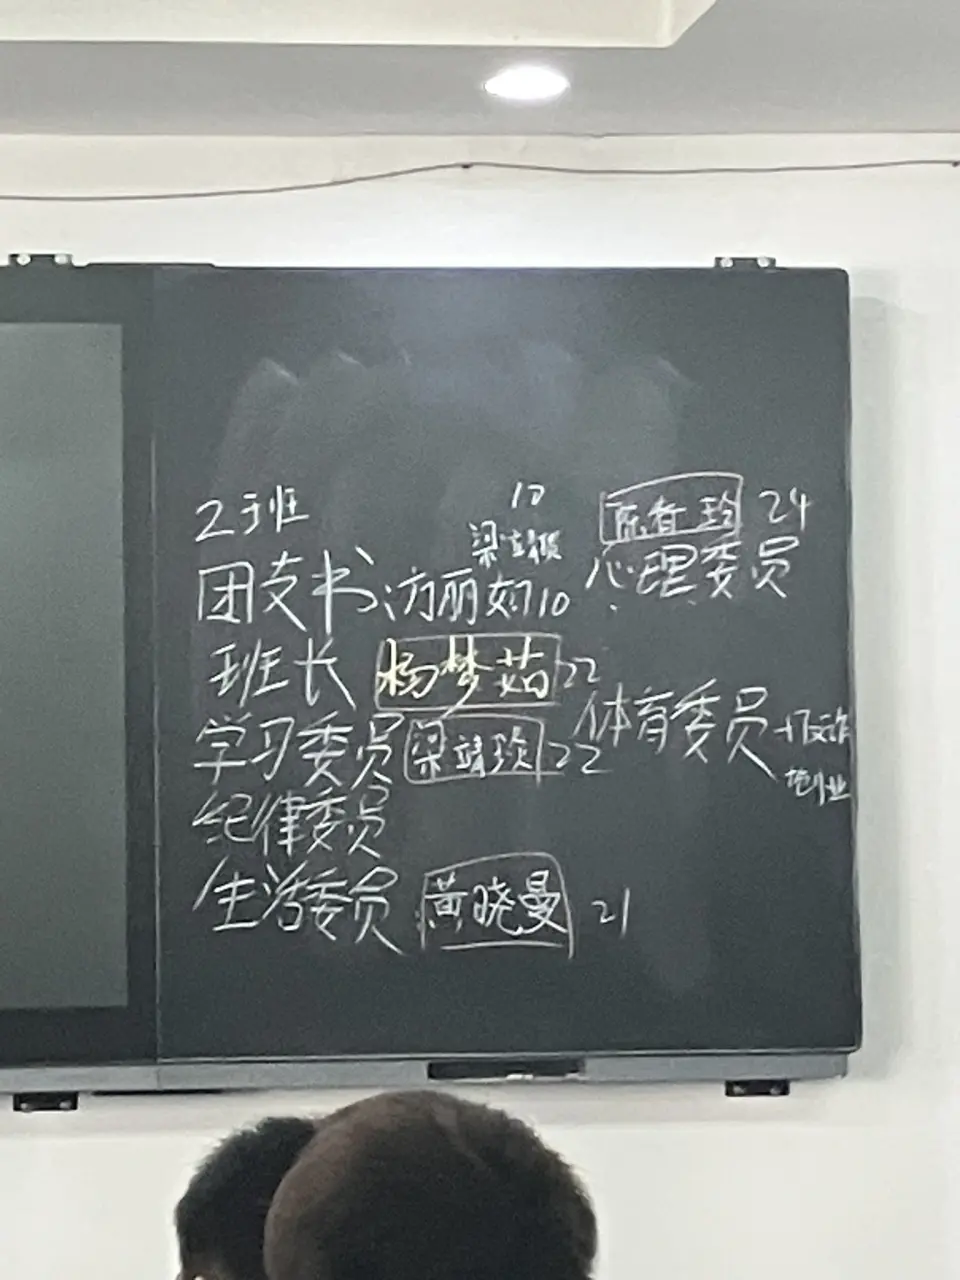 2班
12
梁靖
团支书 方丽如 10
班长 杨梦茹 22
学习委员 梁靖 22
纪律委员
生活委员 黄晓曼 21
陈 玲 24
心理委员
体育委员 +反诈